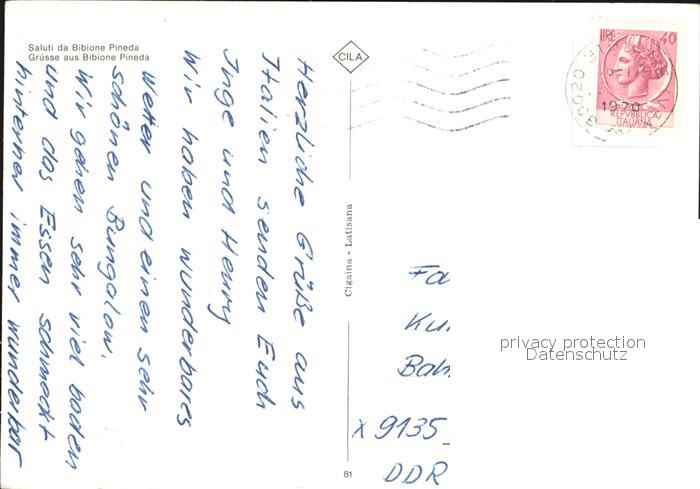 Saluti da Bibione Pineda
Grüsse aus Bibione Pineda
CILA
LIRE 40
1970
REPVBBLICA
ITALIANA
Herzliche Grüße aus
Italien senden Euch
Inge und Henry
Wir haben wunderbares
Wetter und einen sehr
schönen Bungalow.
Wir gehen sehr viel baden
und das Essen schmeckt
hinterher immer wunderbar
Cigaina - Latisana
81
Fa
Ku
Bah
X 9135
DDR
privacy protection
Datenschutz